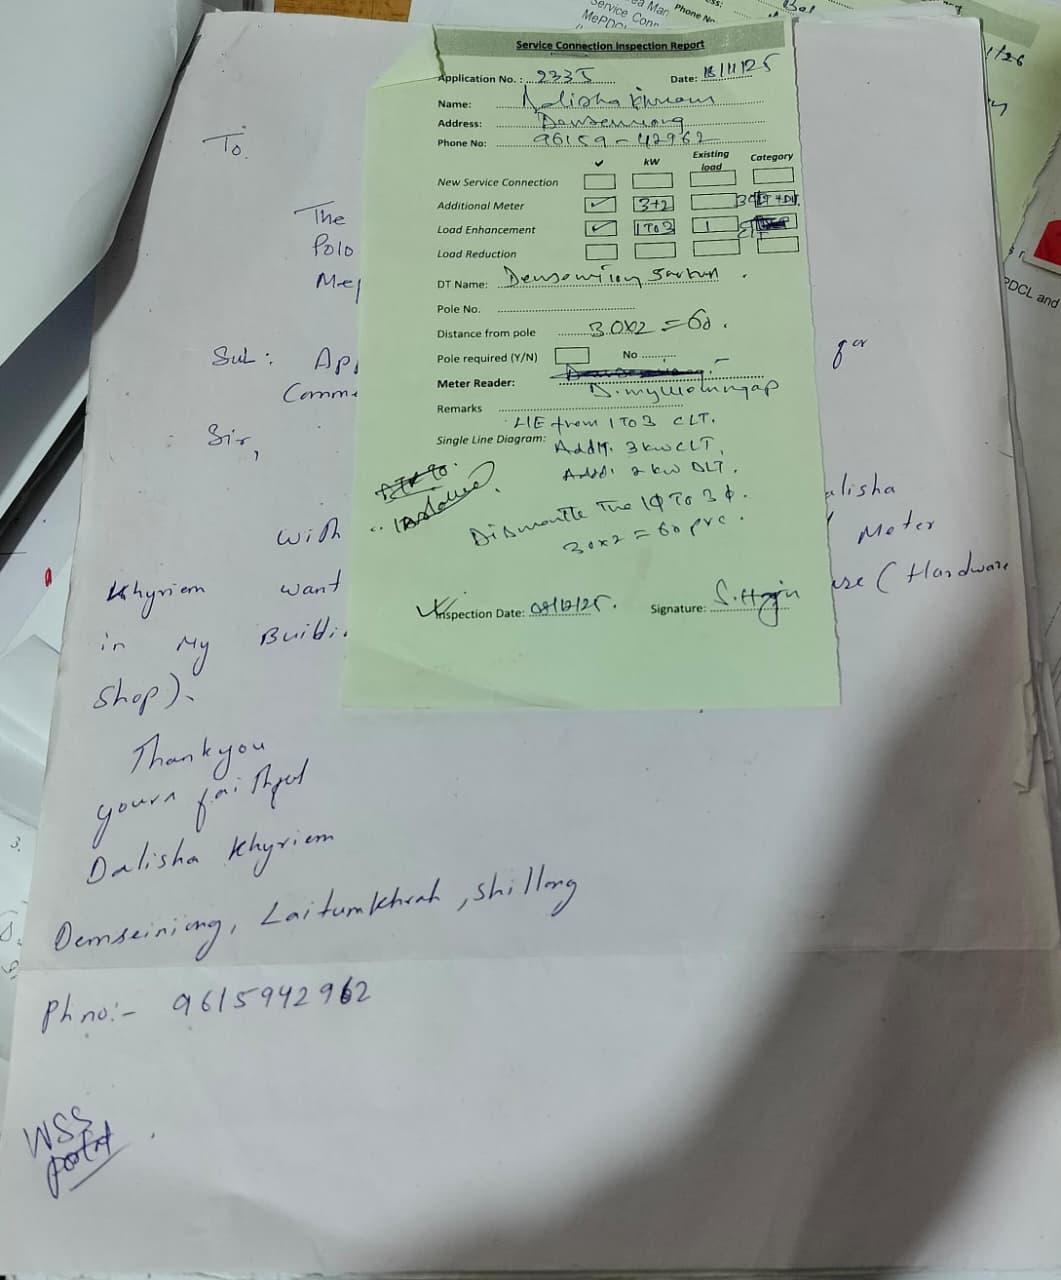 Service Conn
MePDCL
Phone No
1/26
PDCL and
Service Connection Inspection Report
Application No. : 2335 Date: 18/11/25
Name: Dalisha Khyriem
Address: Demseiniong
Phone No: 96159-42962
✓ kW Existing load Category
New Service Connection
Additional Meter ✓ 3+2
Load Enhancement ✓ 1 TO 3 1
Load Reduction
DT Name:
Pole No.
Distance from pole 30x2 = 60.
Pole required (Y/N) No
Meter Reader:
Remarks
L/E from 1 TO 3 CLT.
Single Line Diagram: Addl. 3 kw CLT,
Addl. 2 kw DLT.
Dismantle The 1φ To 3φ.
30x2 = 60 pvc.
Inspection Date: 09/12/25. Signature:
To.
The
Polo
Mep
Sub: App for
Comme
Sir,
with alisha
Khyriem want Meter
in My Buildi use (Hardware
Shop).
Thankyou
yours faithful
Dalisha Khyriem
Demseiniong, Laitumkhrah, shillong
Ph no:- 9615942962
WSS
portal